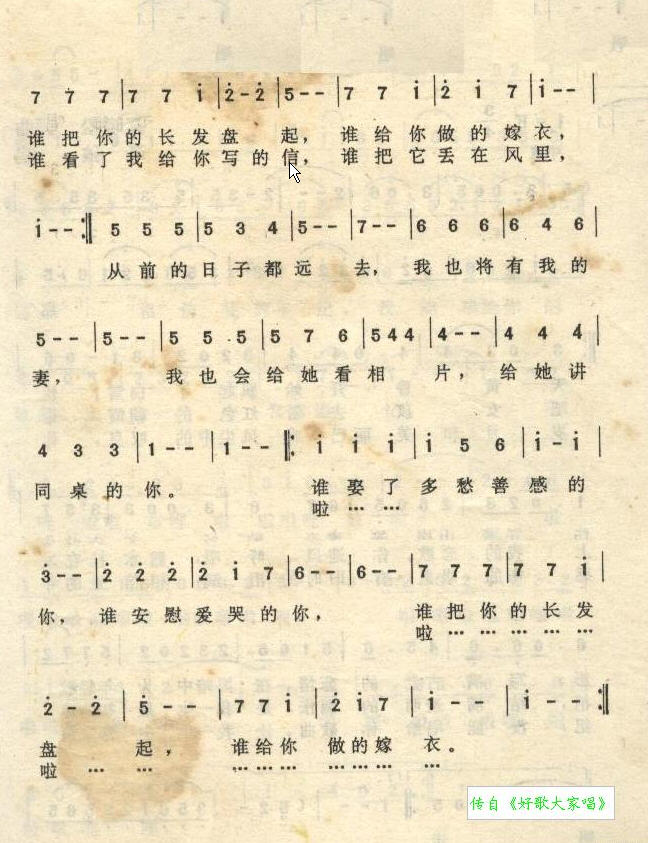 7 7 7 | 7 7 i̇ | 2̇ - 2̇ | 5 - - | 7 7 i̇ | 2̇ i̇ 7 | i̇ - - |
谁 把 你 的 长 发 盘 起, 谁 给 你 做 的 嫁 衣,
谁 看 了 我 给 你 写 的 信, 谁 把 它 丢 在 风 里,
i̇ - - :‖ 5 5 5 | 5 3 4 | 5 - - | 7 - - | 6 6 6 | 6 4 6 |
从 前 的 日 子 都 远 去, 我 也 将 有 我 的
5 - - | 5 - - | 5 5 5 | 5 7 6 | 5 4 4 | 4 - - | 4 4 4 |
妻, 我 也 会 给 她 看 相 片, 给 她 讲
4 3 3 | 1 - - | 1 - - ‖: i̇ i̇ i̇ | i̇ 5 6 | i̇ - i̇ |
同 桌 的 你。 谁 娶 了 多 愁 善 感 的
啦 … …
3̇ - - | 2̇ 2̇ 2̇ | 2̇ i̇ 7 | 6 - - | 6 - - | 7 7 7 | 7 7 i̇ |
你, 谁 安 慰 爱 哭 的 你, 谁 把 你 的 长 发
啦 … … … … …
2̇ - 2̇ | 5 - - | 7 7 i̇ | 2̇ i̇ 7 | i̇ - - | i̇ - - :‖
盘 起, 谁 给 你 做 的 嫁 衣。
啦 … … … … … … … … …
传自《好歌大家唱》